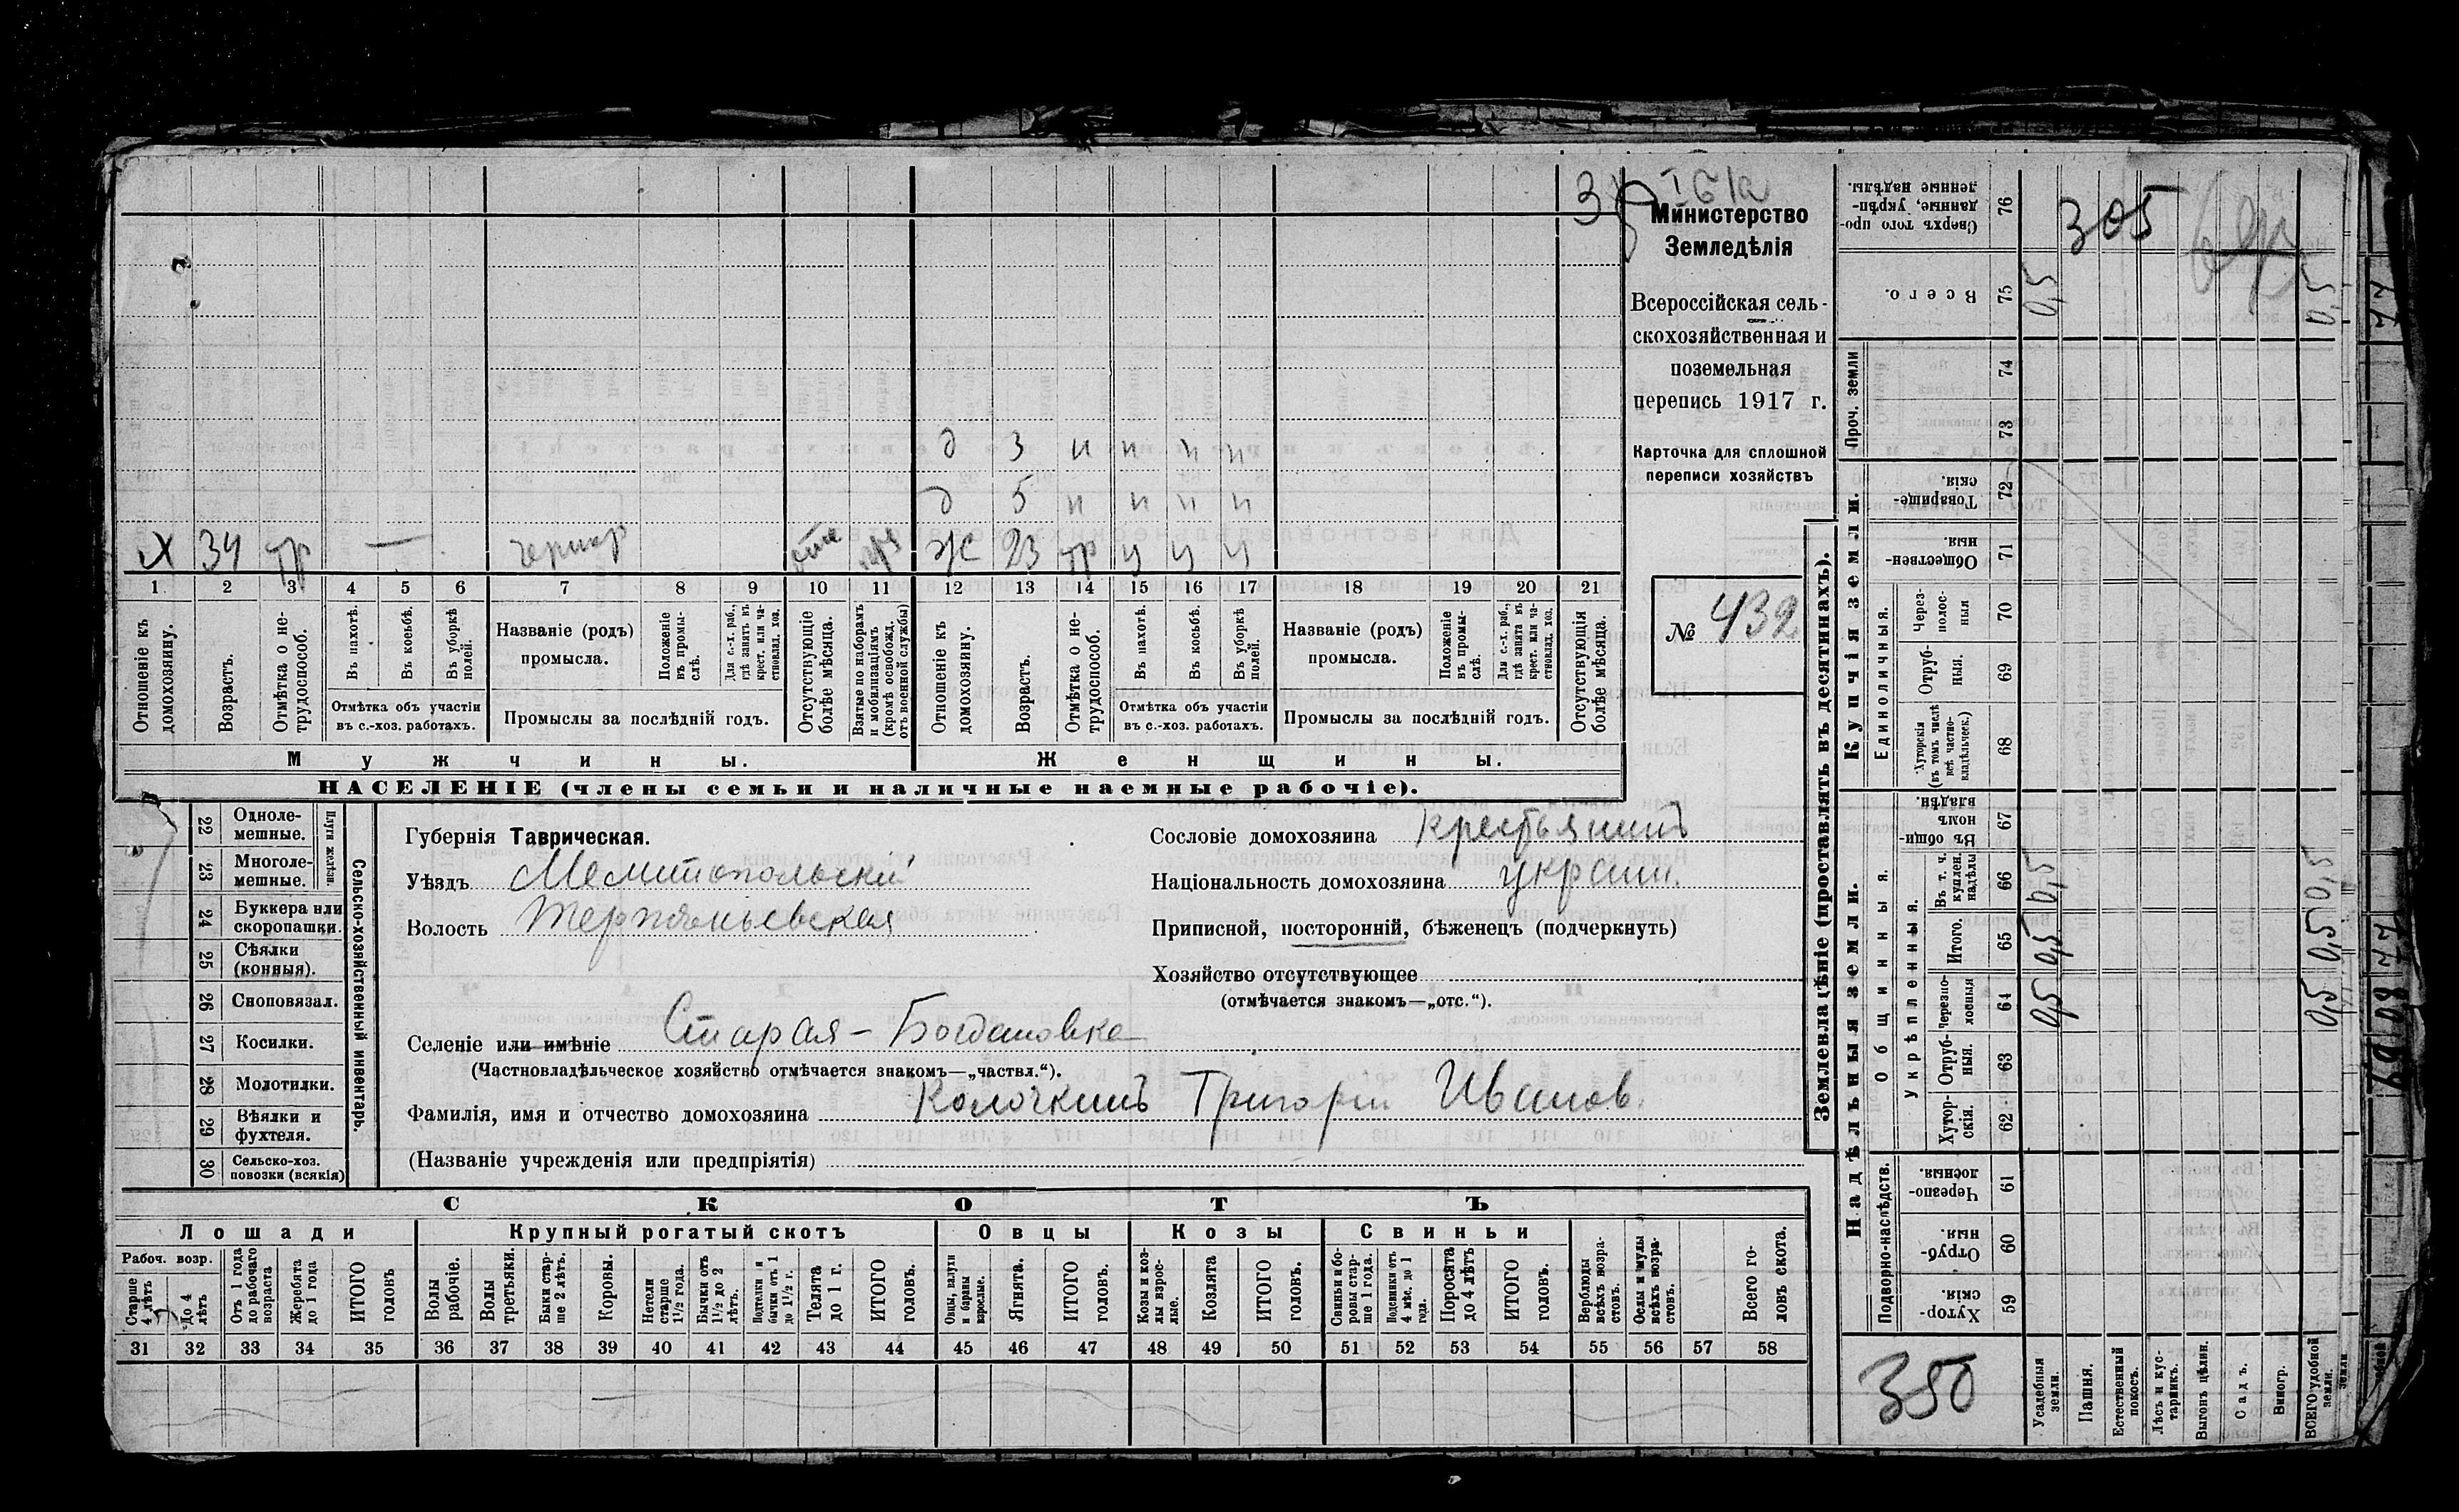 Министерство
Земледѣлія
Всероссійская сель-
скохозяйственная и
поземельная
перепись 1917 г.
Карточка для сплошной
переписи хозяйствъ
№ 432
д 3 н н н н
д 5 н н н н
х 34 тр — ж 23 тр ч ч ч
1 2 3 4 5 6 7 8 9 10 11 12 13 14 15 16 17 18 19 20 21
Отношеніе къ домохозяину.
Возрастъ.
Отмѣтка о не-трудоспособ.
Въ пахотѣ.
Въ косьбѣ.
Въ уборкѣ полей.
Отмѣтка объ участіи
въ с.-хоз. работахъ.
Названіе (родъ)
промысла.
Положеніе въ промы-слѣ.
Для с.-х. раб., гдѣ занятъ въ крест. или ча-стновлад. хоз.
Промыслы за послѣдній годъ.
Отсутствующіе болѣе мѣсяца.
Взятые по наборамъ и мобилизаціямъ (кромѣ освобожд. отъ военной службы)
Отношеніе къ домохозяину.
Возрастъ.
Отмѣтка о не-трудоспособ.
Въ пахотѣ.
Въ косьбѣ.
Въ уборкѣ полей.
Отмѣтка объ участіи
въ с.-хоз. работахъ.
Названіе (родъ)
промысла.
Положеніе въ промы-слѣ.
Для с.-х. раб., гдѣ занята въ крест. или ча-стновлад. хоз.
Промыслы за послѣдній годъ.
Отсутствующія болѣе мѣсяца.
Мужчины.
Женщины.
НАСЕЛЕНІЕ (члены семьи и наличные наемные рабочіе).
Сельско-хозяйственный инвентарь.
Плуги желѣзн.
22 Одноле-мешные.
23 Многоле-мешные.
24 Буккера или скоропашки.
25 Сѣялки (конныя).
26 Сноповязал.
27 Косилки.
28 Молотилки.
29 Вѣялки и фухтеля.
30 Сельско-хоз. повозки (всякія)
Губернія Таврическая.
Уѣздъ Мелитопольскій
Волость Терпѣньевская
Сословіе домохозяина крестьянинъ
Національность домохозяина украин.
Приписной, посторонній, бѣженецъ (подчеркнуть)
Хозяйство отсутствующее
(отмѣчается знакомъ—„отс.“).
Селеніе или имѣніе Старая-Богдановка
(Частновладѣльческое хозяйство отмѣчается знакомъ—„частвл.“).
Фамилія, имя и отчество домохозяина Колочкинъ Григорій Иванов.
(Названіе учрежденія или предпріятія)
СКОТЪ
Лошади
Крупный рогатый скотъ
Овцы
Козы
Свиньи
Рабоч. возр.
Старше 4 лѣтъ
До 4 лѣтъ
Отъ 1 года до рабочаго возраста
Жеребята до 1 года
ИТОГО головъ
Волы рабочіе.
Волы третьяки.
Быки стар-ше 2 лѣтъ.
Коровы.
Нетели старше 1½ года.
Бычки отъ 1½ до 2 лѣтъ.
Подтелки и бычки отъ 1 до 1½ г.
Телята до 1 г.
ИТОГО головъ.
Овцы, валухи и бараны взрослые.
Ягнята.
ИТОГО головъ.
Козы и коз-лы взрос-лые.
Козлята
ИТОГО головъ.
Свиньи и бо-ровы стар-ше 1 года.
Подсвинки отъ 4 мѣс. до 1 года.
Поросята до 4 лѣтъ
ИТОГО головъ.
Верблюды всѣхъ возра-стовъ.
Ослы и мулы всѣхъ возра-стовъ.
Всего го-ловъ скота.
31 32 33 34 35 36 37 38 39 40 41 42 43 44 45 46 47 48 49 50 51 52 53 54 55 56 57 58
Землевладѣніе (проставлять въ десятинахъ).
Надѣльныя земли.
Купчія земли.
Проч. земли
Подворно-наслѣдств.
Общинныя.
Укрѣпленныя.
Единоличныя.
Сверхъ того про-данные, укрѣп-ленные надѣлы. 76
Всего. 75 0,5 0,5
74
73
Товарище-скія. 72
Обществен-ныя 71
Через-полос-ныя 70
Отруб-ныя. 69
Хуторскія (въ томъ числѣ всѣ частно-владѣльческ.) 68
Въ общи-номъ владѣн. 67
Въ т. ч. куплен. надѣлы 66 0,5 0,5
Итого. 65 0,5 0,5
Черезпо-лосныя 64 0,5 0,5
Отруб-ныя. 63
Хутор-скія. 62
Черезпо-лосныя 61
Отруб-ныя. 60
Хутор-скія. 59
305
350
Усадебныя земли.
Пашня.
Естественный покосъ.
Лѣсъ и кус-тарникъ.
Выгонъ цѣлин.
Садъ.
Виногр.
ВСЕГО удобной земли.